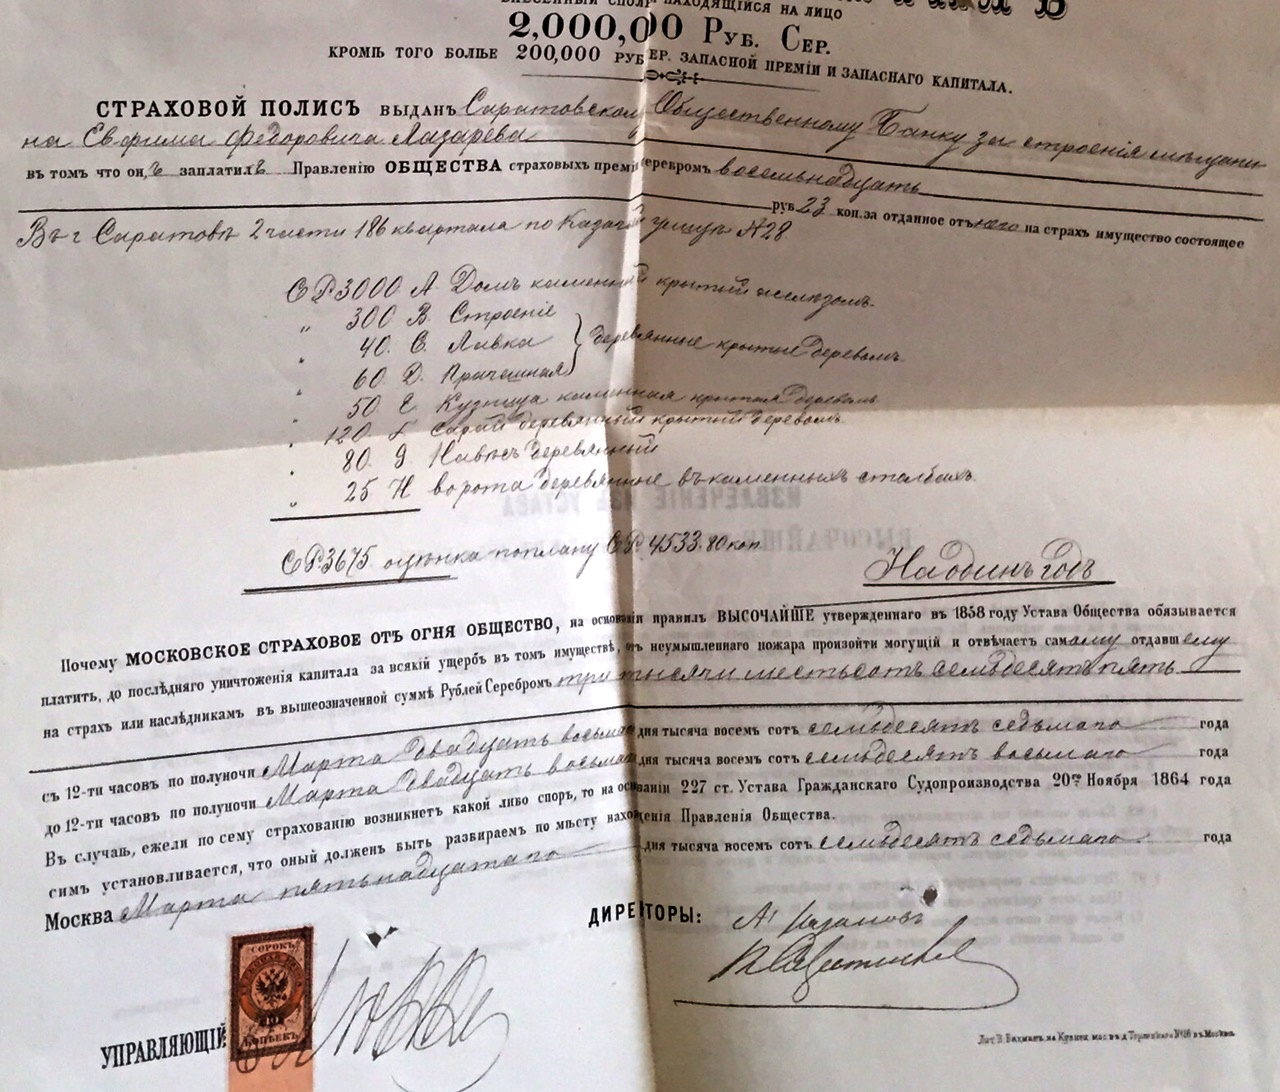 НАХОДЯЩІЙСЯ НА ЛИЦО
2,000,000 РУБ. СЕР.
КРОМѢ ТОГО БОЛѢЕ 200,000 РУБ. СЕР. ЗАПАСНОЙ ПРЕМІИ И ЗАПАСНАГО КАПИТАЛА.
СТРАХОВОЙ ПОЛИСЪ ВЫДАНЪ Саратовскому Общественному Банку за строенія мѣщани
на Евфима Федоровича Лазарева
въ томъ что онъ заплатилъ Правленію ОБЩЕСТВА страховыхъ премій серебромъ восемьнадцать
руб 23 коп. за отданное отъ него на страхъ имущество состоящее
Въ г Саратовѣ 2 части 186 квартала по Казачьей улицѣ № 28
СР 3000 А. Домъ каменный крытый желѣзомъ.
" 300 В. Строеніе
" 40. С. Лавка } деревянные крытые деревомъ
" 60 D. Прачешная
" 50 Е Кузница каменная крытая деревомъ
" 120 F Сарай деревянный крытый деревомъ.
80. G. Навѣсъ деревянный
" 25 H ворота деревянные въ каменныхъ столбахъ.
СР. 3675 оцѣнка по плану СР. 4533. 80 коп
На одинъ годъ
Почему МОСКОВСКОЕ СТРАХОВОЕ ОТЪ ОГНЯ ОБЩЕСТВО, на основаніи правилъ ВЫСОЧАЙШЕ утвержденнаго въ 1858 году Устава Общества обязывается
платить, до послѣдняго уничтоженія капитала за всякій ущербъ въ томъ имуществѣ, отъ неумышленнаго пожара произойти могущій и отвѣчаетъ самому отдавшему
на страхъ или наслѣдникамъ въ вышеозначенной суммѣ Рублей Серебромъ три тысячи шестьсотъ семьдесятъ пять
съ 12-ти часовъ по полуночи Марта двадцать восьмаго дня тысяча восемъ сотъ семьдесятъ седьмаго года
до 12-ти часовъ по полуночи Марта двадцать восьмаго дня тысяча восемъ сотъ семьдесятъ восьмаго года
Въ случаѣ, ежели по сему страхованію возникнетъ какой либо споръ, то на основаніи 227 ст. Устава Гражданскаго Судопроизводства 20го Ноября 1864 года
симъ установливается, что оный долженъ быть разбираемъ по мѣсту нахожденія Правленія Общества.
Москва Марта пятьнадцатаго дня тысяча восемъ сотъ семьдесятъ седьмаго года
ДИРЕКТОРЫ:
СОРОКЪ
40
КОПѢЕКЪ
УПРАВЛЯЮЩІЙ